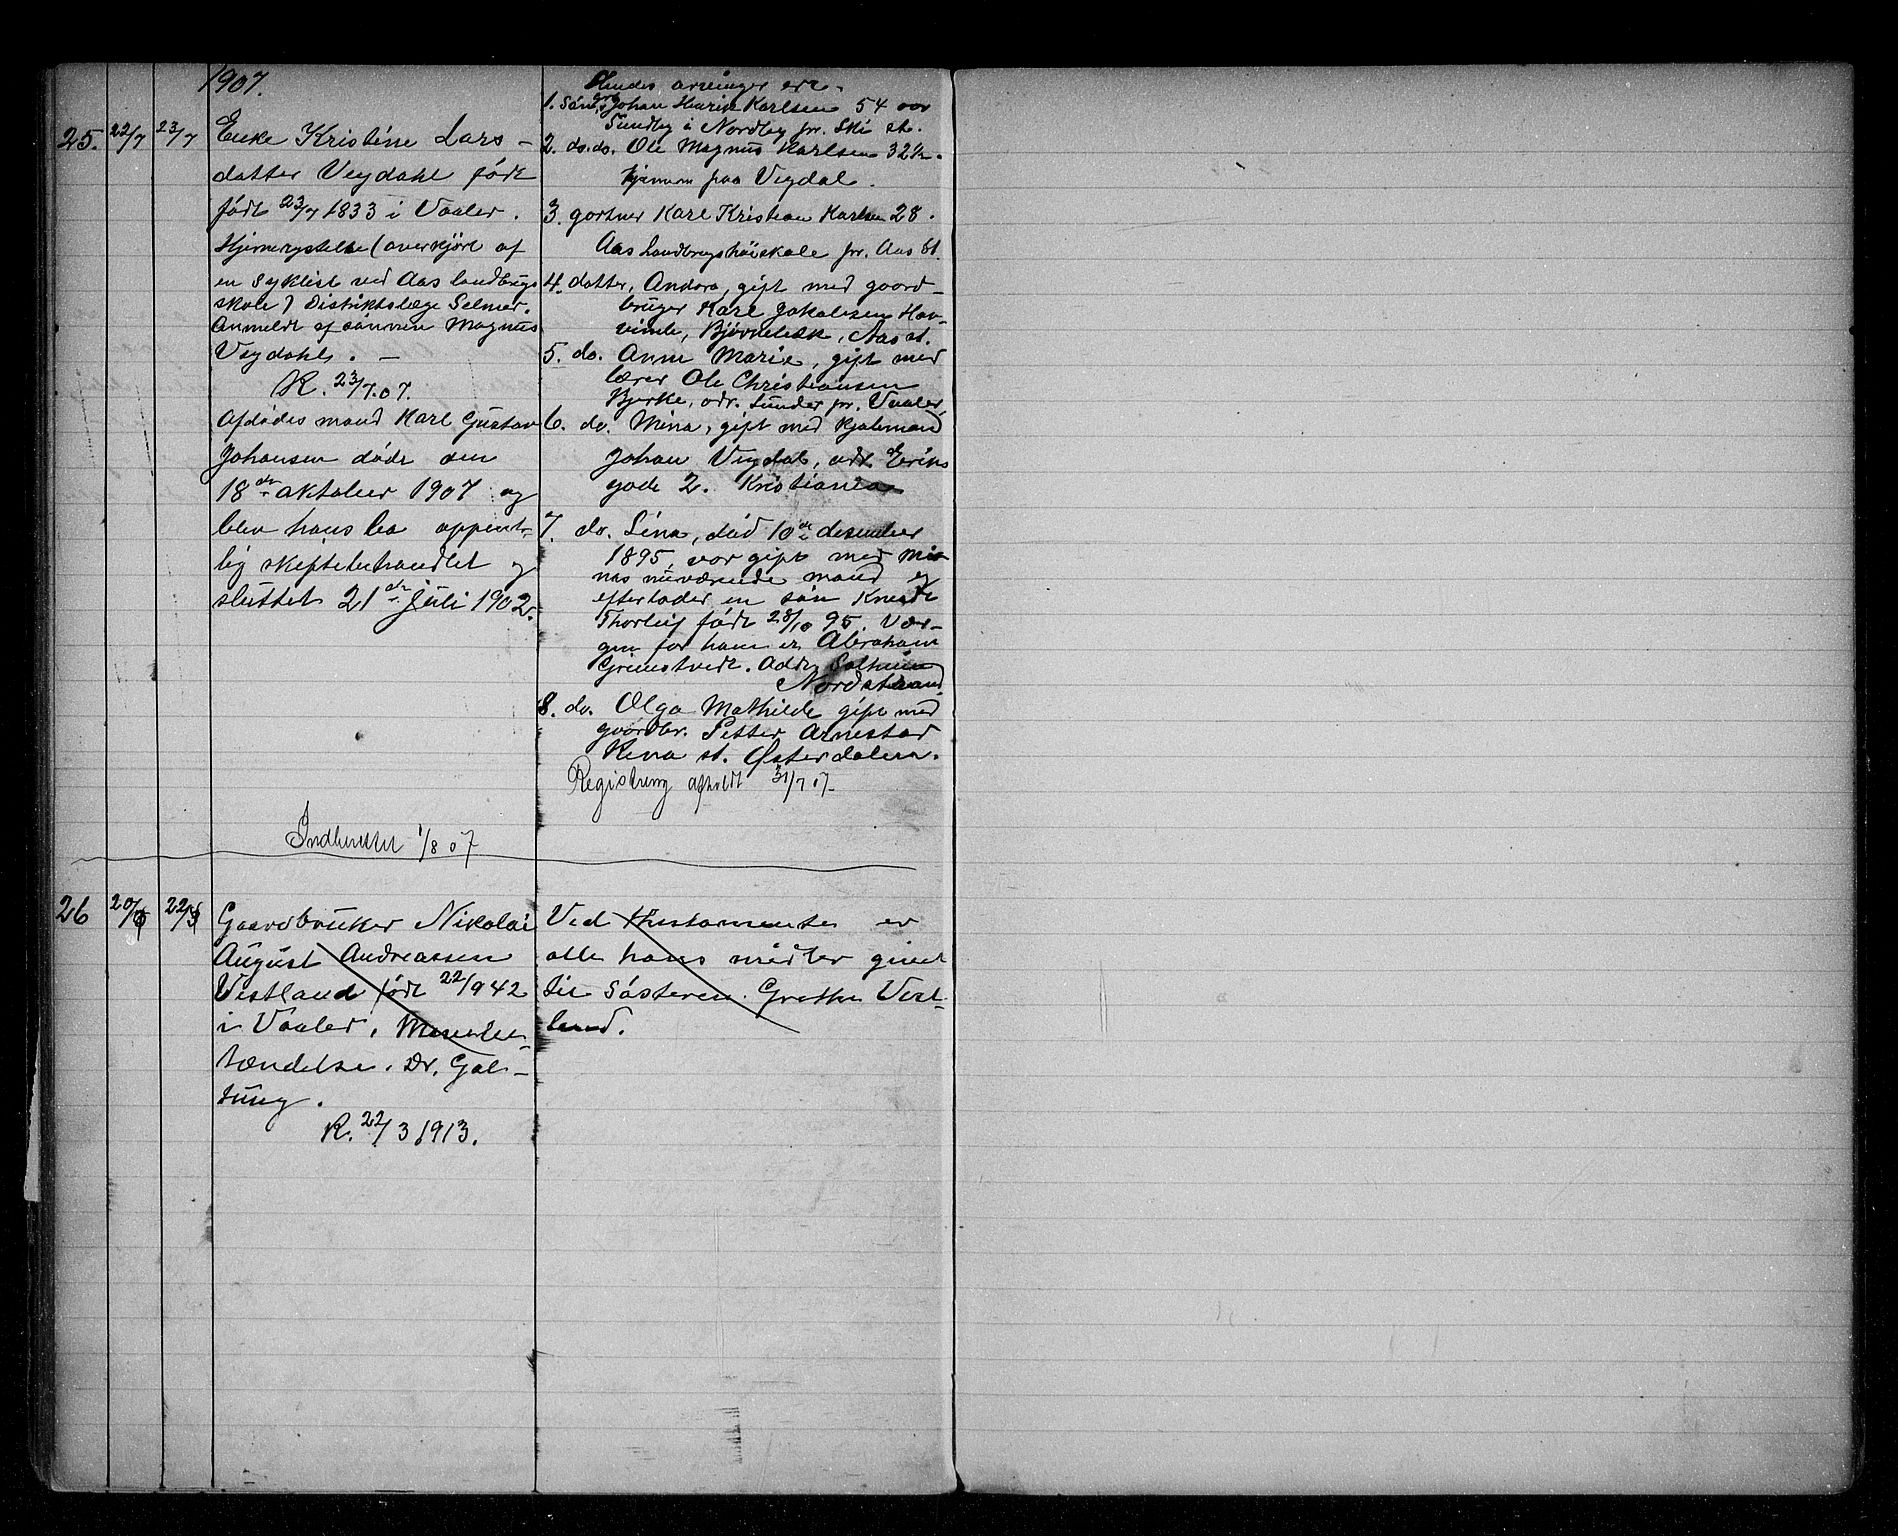 1907.
25. 22/7 23/7 Enke Kristine Lars-
datter Veydahl født
født 23/7 1833 i Vaaler.
Hjernerystelse (overkjørt af
en syklist ved Aas landbrugs
skole) Distriktslæge Selmer.
Anmeldt af sønnen Magnus
Veydahl. —
R. 23/7.07.
Afdødes mand Karl Gustav
Johansen døde den
18de oktober 1907 og
blev hans bo offent-
lig skiftebehandlet og
sluttet 21de juli 1902.
Indberettet 1/8 07
Hendes arvinger ere
1. Søn, Johan Henrik Karlsen 54 aar
Sundby i Nordby pr. Ski st.
2. do. do. Ole Magnus Karlsen 32 1/2.
hjemme paa Veydal.
3. gartner Karl Kristian Karlsen 28.
Aas Landbrugshøiskole pr. Aas St.
4. datter, Andora, gift med gaard-
bruger Karl Jakobsen Hav-
vinde, Bjørnebæk, Aas st.
5. do. Anne Marie, gift med
lærer Ole Christiansen
Bjerke, adr. Sunder pr. Vaaler,
6. do. Mina, gift med
Johan Veydal, adr. Eriks
gade 2. Kristiania
7. do. Lina, død 10de desember
1895, var gift med Mi-
nas nuværende mand og
efterlader en søn
Thorleif født 28/10 95. Vær-
gen for ham er Abraham
Grimstvedt. Addr Solheim
Nordstrand
8. do. Olga Mathilde gift med
gaardbr. Petter Arnestad
Rena st. Østerdalen.
Registrering afholdt 31/7 07.
26 20/3 22/3 Gaardbruker Nikolai
August Andreassen
Vestland født 22/9 42
i Vaaler,
tændelse. Dr. Gal-
tung.
R. 22/3 1913.
Ved thestamente er
alle hans midler givet
til søsteren. Grethe Vest-
lund.